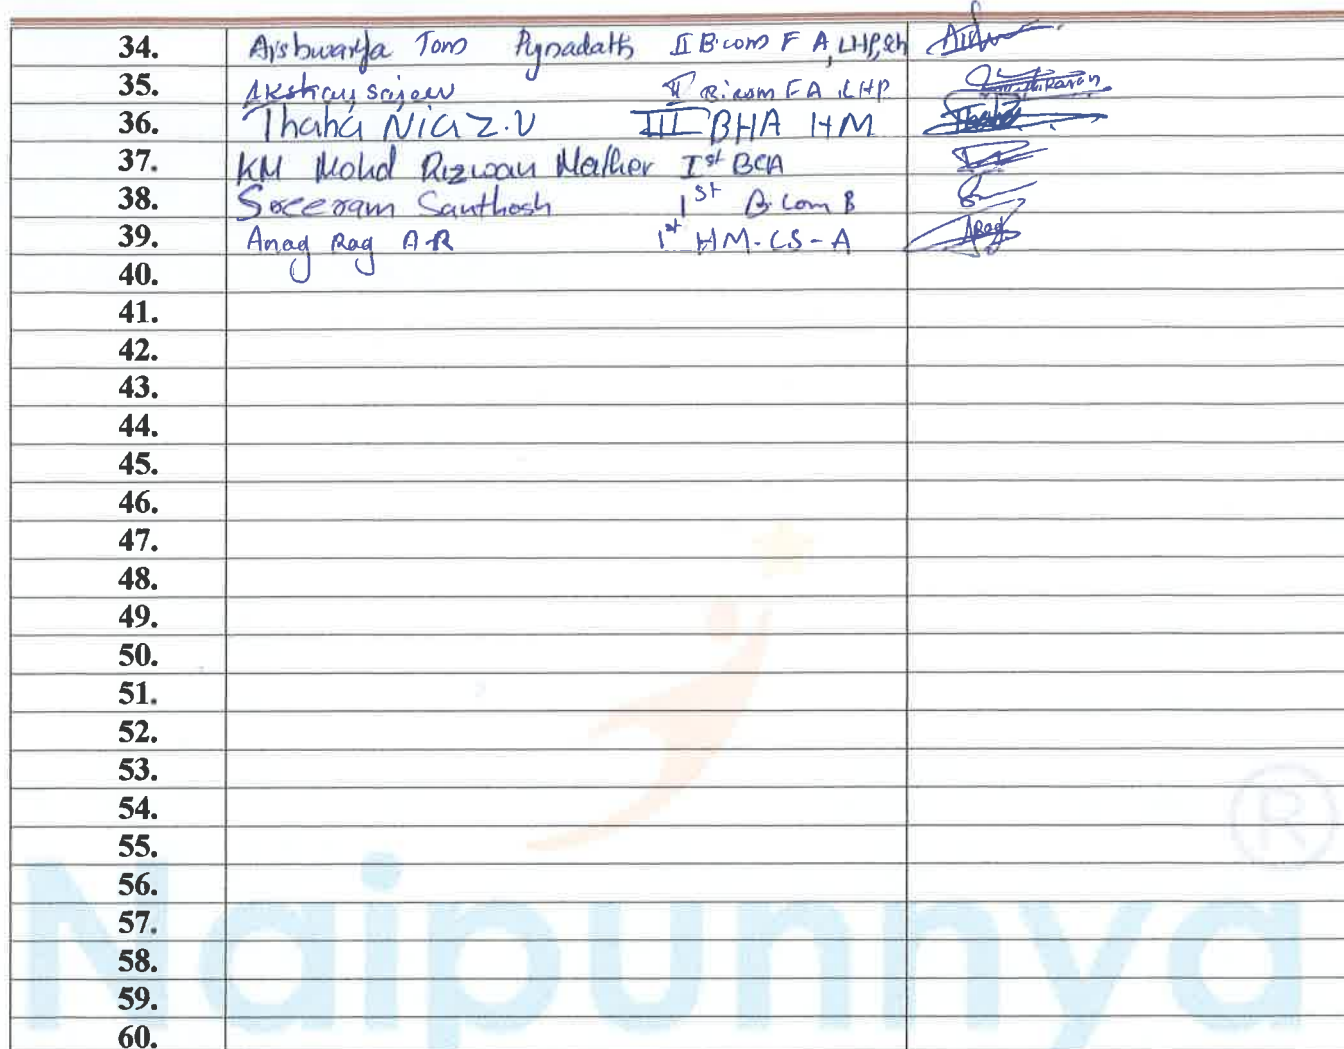 34. Aishwarya Tom Pynadath II B.com F A, LHP,
35. Akshay Sajeev II B.com FA, LHP
36. Thaha Niaz.V III BHA HM Thaha
37. KM Mohd Rizwan Mather Ist BCA
38. Sreeram Santhosh 1st B.com B
39. Anag Rag A-R 1st HM-CS-A
40.
41.
42.
43.
44.
45.
46.
47.
48.
49.
50.
51.
52.
53.
54.
55.
56.
57.
58.
59.
60.
Naipunnya ®